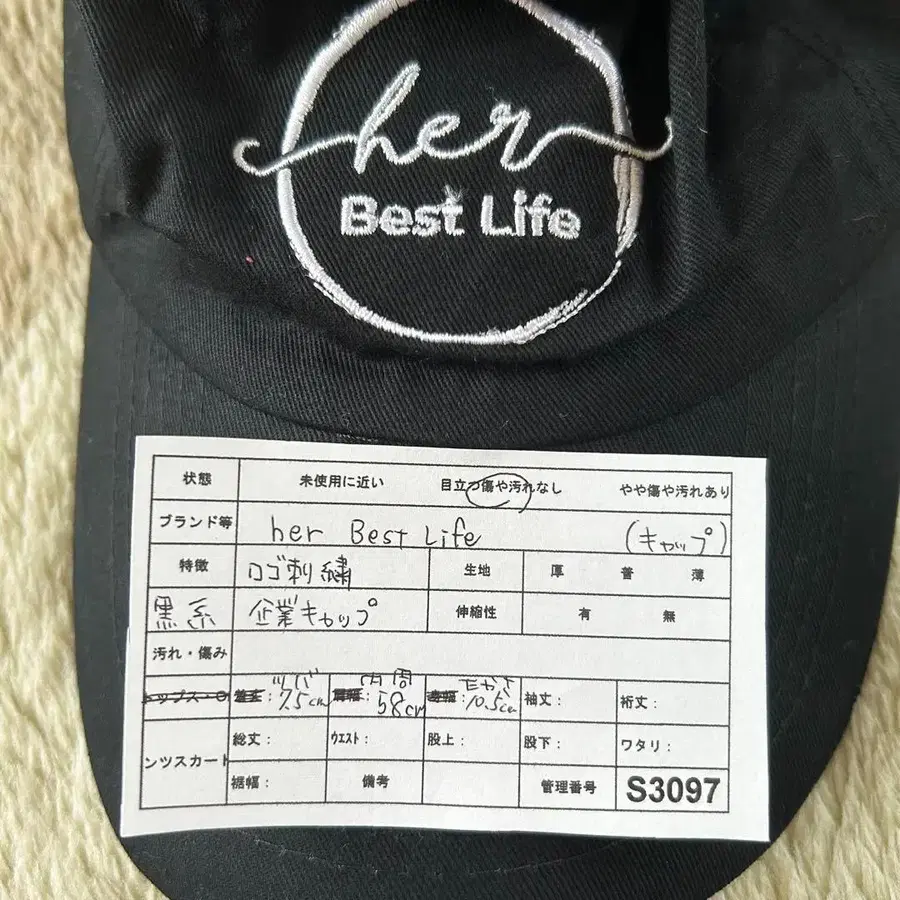 her
Best Life
状態 未使用に近い 目立つ傷や汚れなし やや傷や汚れあり
ブランド等 her Best Life (キャップ)
特徴 ロゴ刺繍 生地 厚 普 薄
黒系 企業キャップ 伸縮性 有 無
汚れ・傷み
ツバ 内周 たかさ
トップス・ 着丈: 7.5cm 肩幅: 58cm 身幅: 10.5cm 袖丈: 裄丈:
総丈: ウエスト: 股上: 股下: ワタリ:
ンツスカート
裾幅: 備考 管理番号 S3097